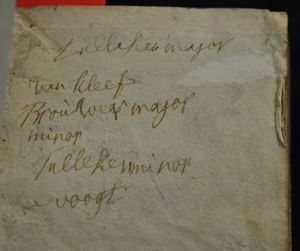 Tulleken major
van Kleef
Brouwer major
minor
Tulleken minor
voogt